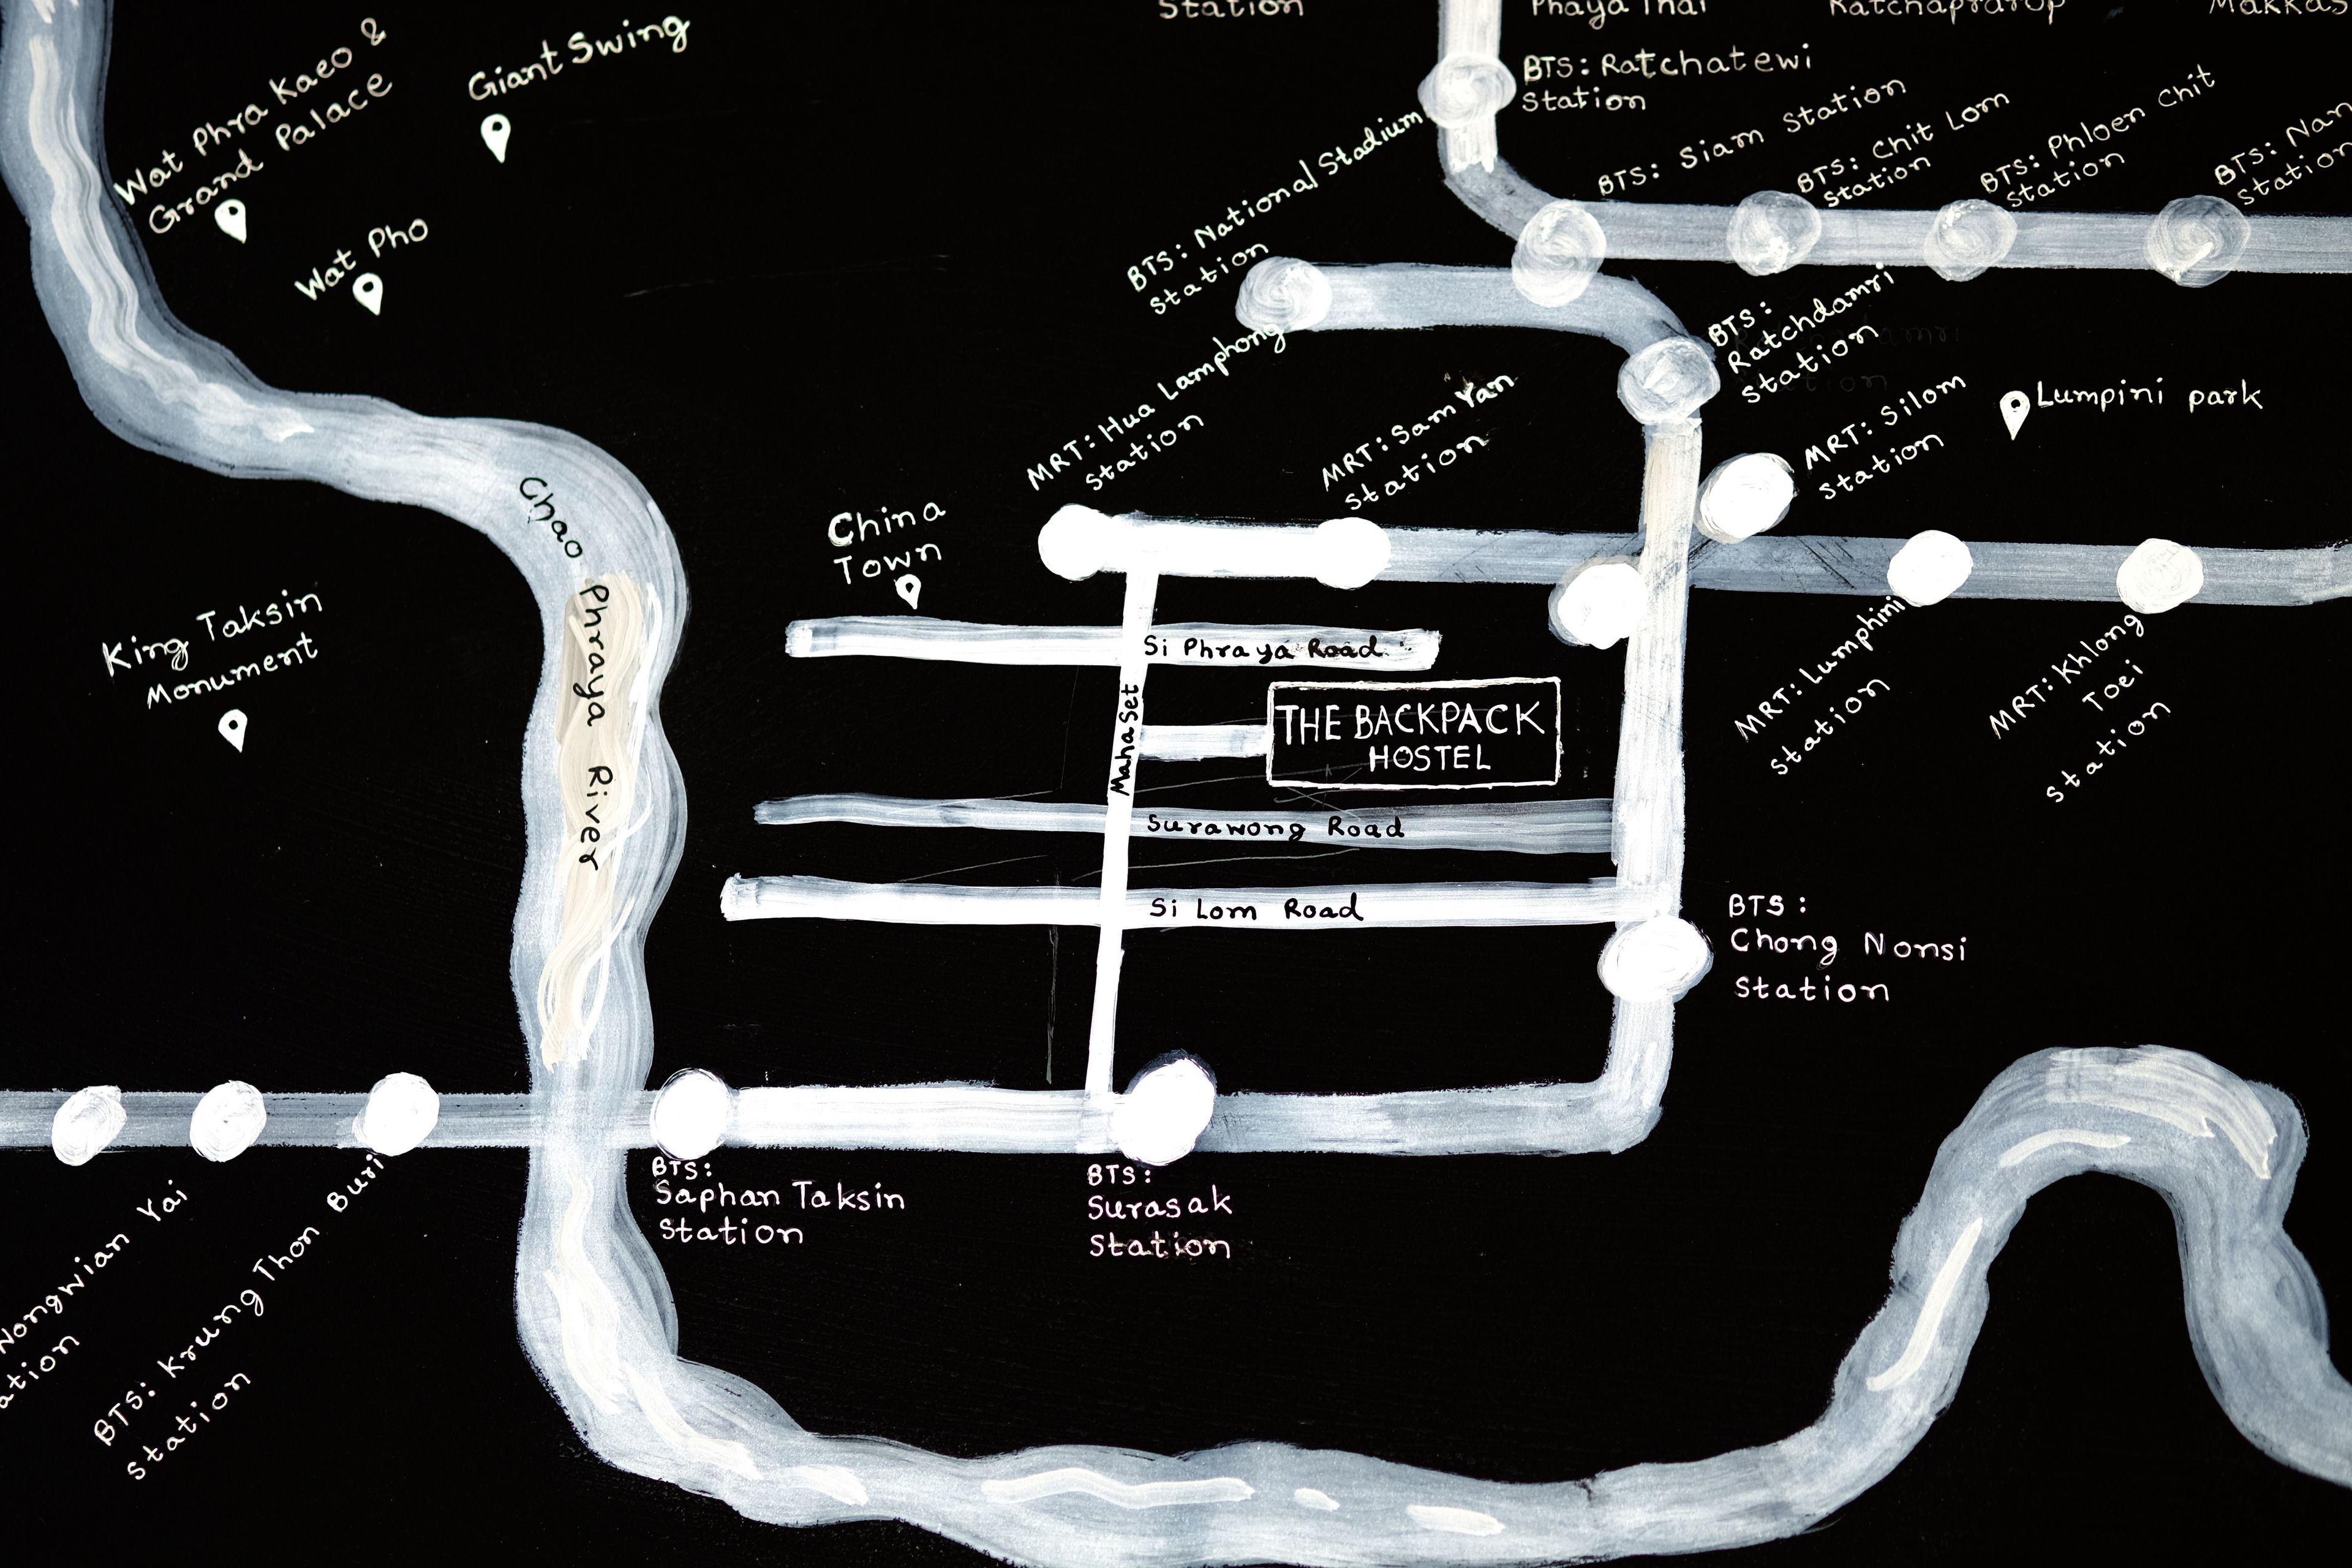 Station
Phaya Thai
Ratchaprarop
BTS: Ratchatewi
Station
Wat Phra Kaeo &
Grand Palace
Giant Swing
Wat Pho
BTS: National Stadium
Station
BTS: Siam Station
BTS: Chit Lom
Station
BTS: Phloen Chit
Station
BTS:
Station
BTS:
Ratchdamri
Station
MRT: Hua Lamphong
Station
MRT: Sam Yan
Station
MRT: Silom
Station
Lumpini park
China
Town
Chao Phraya River
King Taksin
Monument
Si Phraya Road
MahaSet
THE BACKPACK
HOSTEL
Surawong Road
Si Lom Road
MRT: Lumphini
Station
MRT: Khlong
Toei
Station
BTS:
Chong Nonsi
Station
BTS:
Saphan Taksin
Station
BTS:
Surasak
Station
Wongwian Yai
BTS: Krung Thon Buri
Station